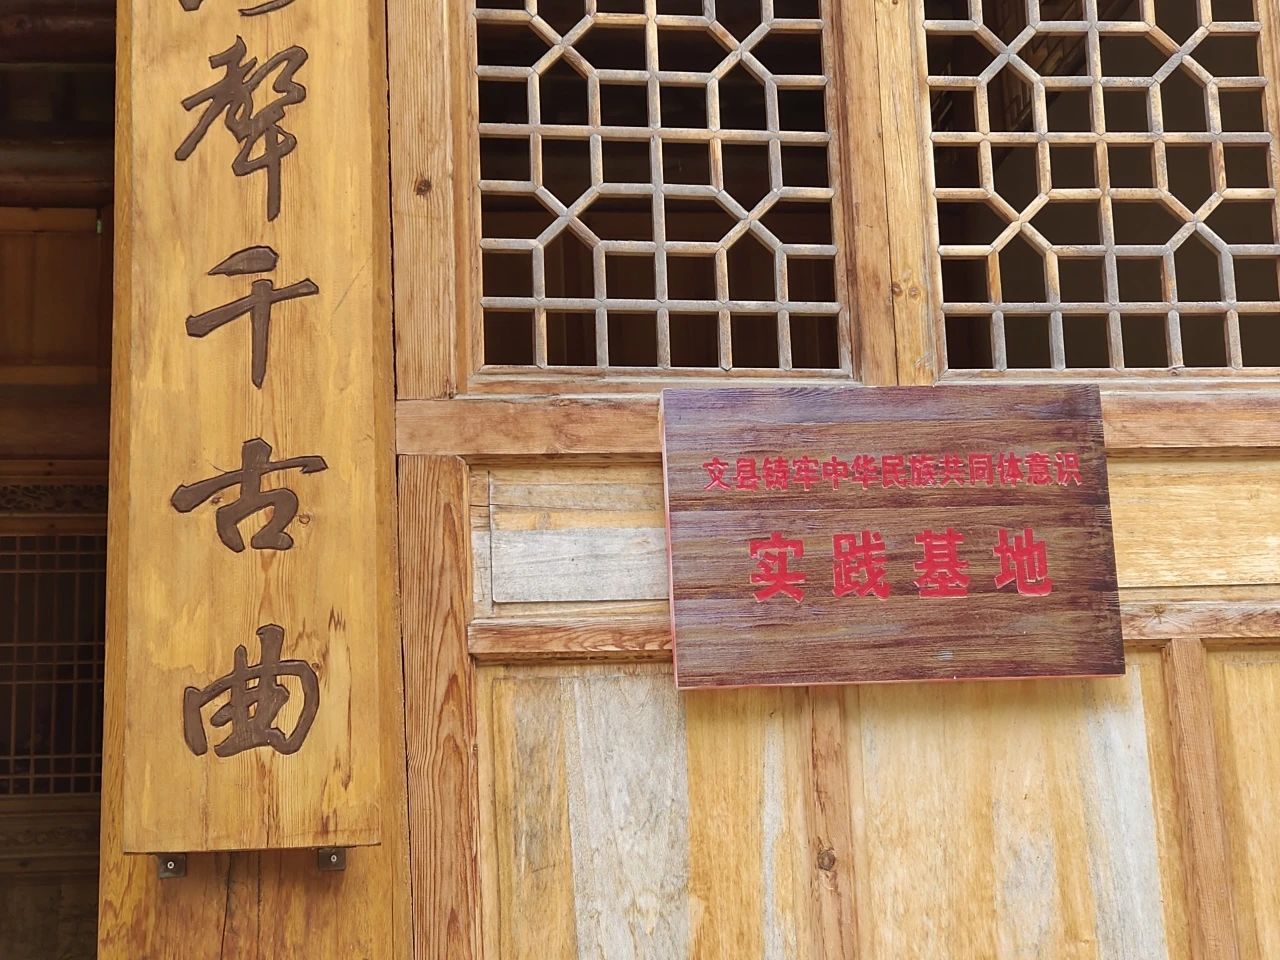 聲千古曲
文县铸牢中华民族共同体意识
实践基地